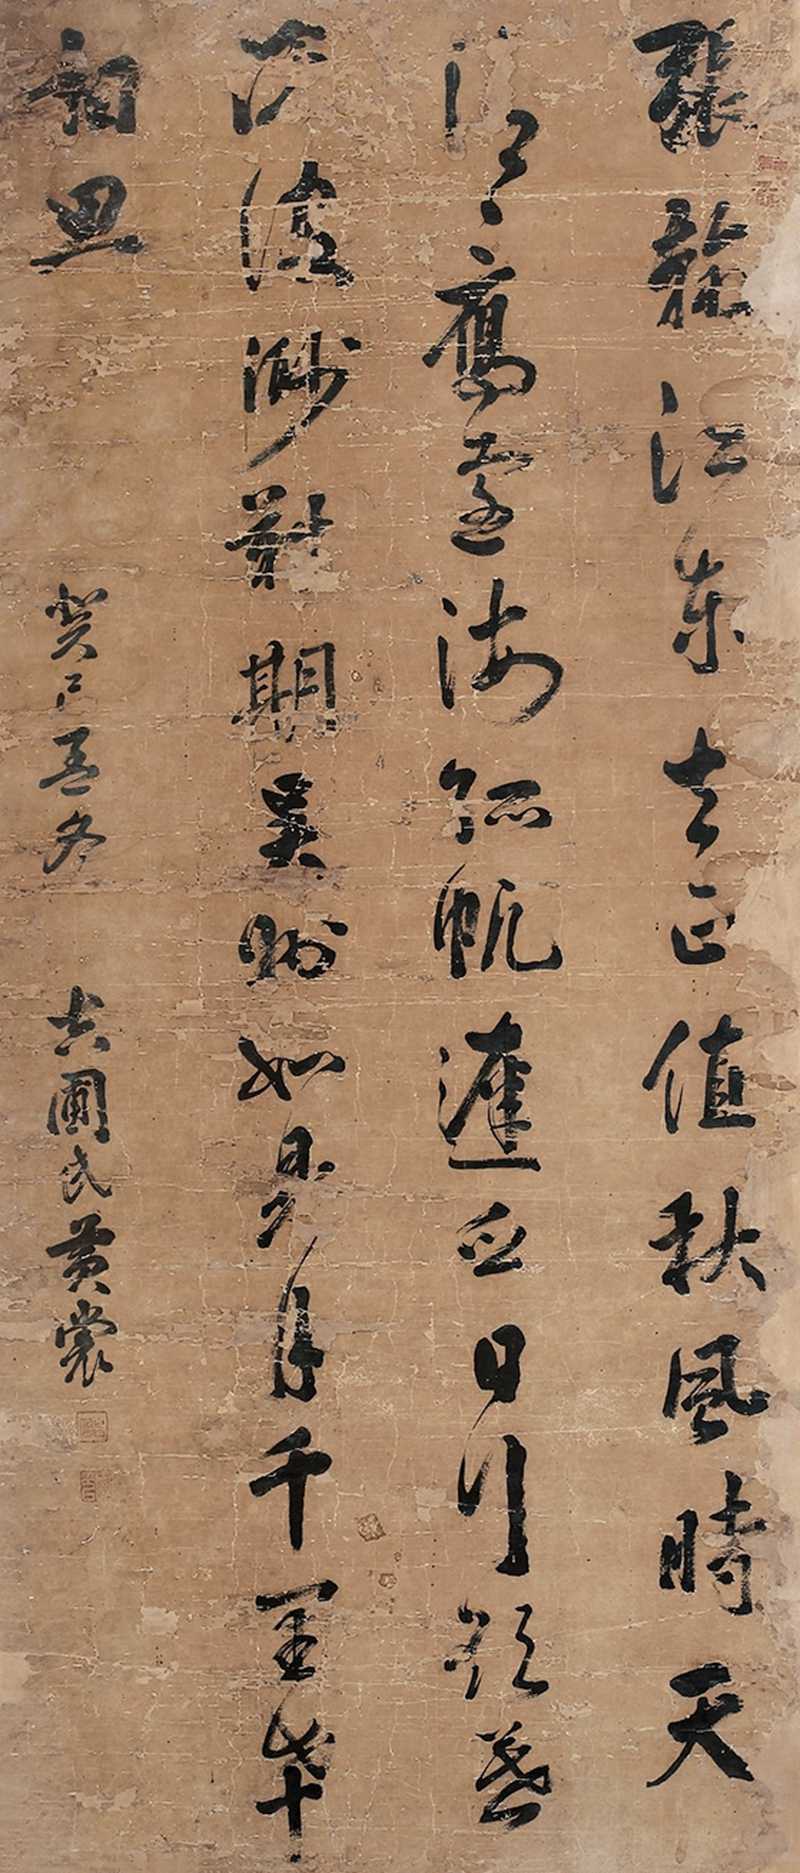 張翰江東去正值秋風時天
清鴈遠海孤帆遲白日行欲暮
滄波渺難期吳洲如見月千里幸
相思
癸巳孟冬 圃民黃裳